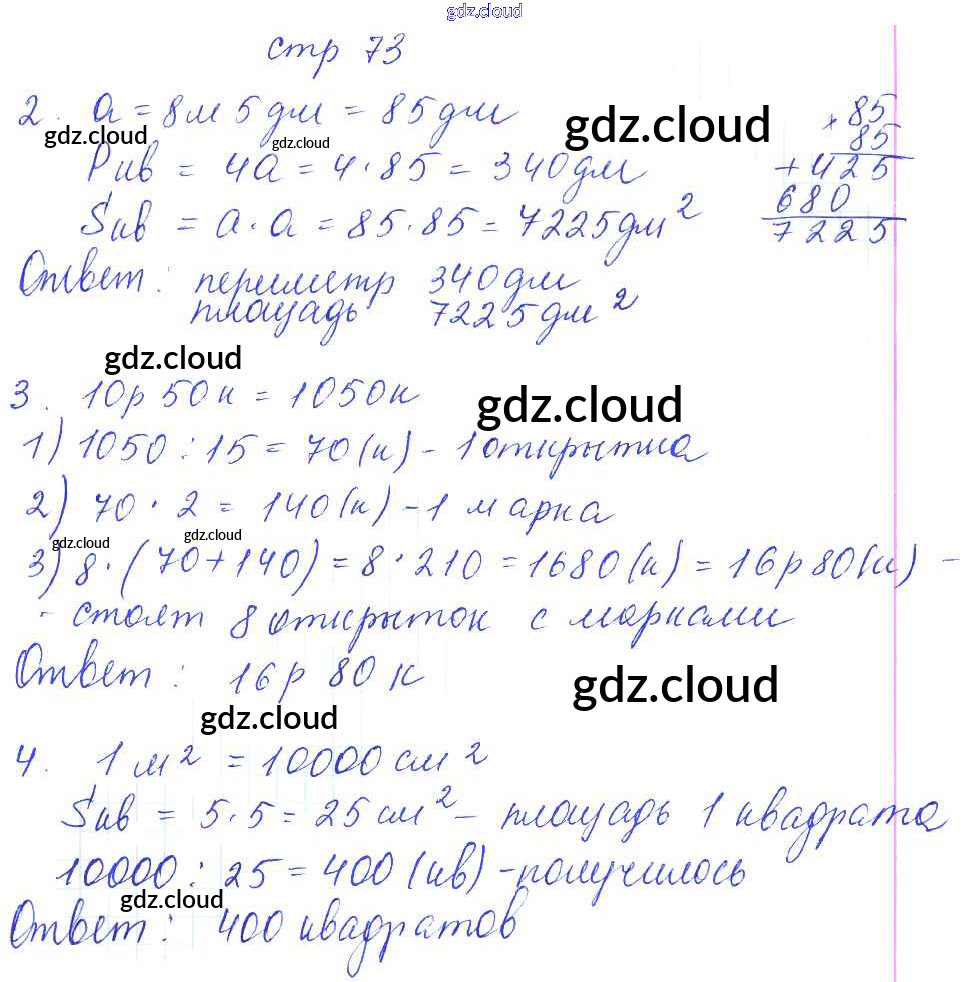 gdz.cloud
стр 73
2. a = 8м 5дм = 85дм
gdz.cloud gdz.cloud gdz.cloud
Pкв = 4a = 4·85 = 340дм
Sкв = a·a = 85·85 = 7225дм²
× 85
85
+ 425
680
7225
Ответ: периметр 340дм
площадь 7225дм²
gdz.cloud
3. 10р 50к = 1050к
gdz.cloud
1) 1050 : 15 = 70(к) – 1 открытка
2) 70 · 2 = 140(к) – 1 марка
gdz.cloud gdz.cloud
3) 8·(70+140) = 8·210 = 1680(к) = 16р 80(к) –
- стоят 8 открыток с марками
Ответ: 16р 80к
gdz.cloud
gdz.cloud
4. 1м² = 10000см²
Sкв = 5·5 = 25см² – площадь 1 квадрата
10000 : 25 = 400(кв) – получилось
gdz.cloud
Ответ: 400 квадратов